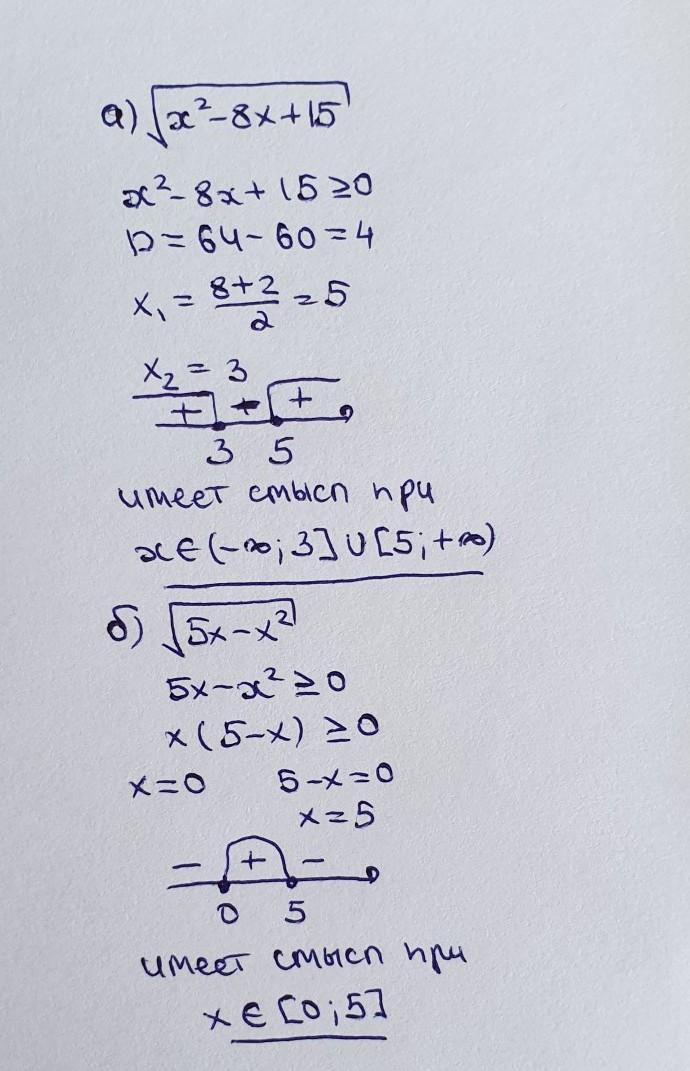 а) √(x²-8x+15)
x²-8x+15≥0
D=64-60=4
x₁=(8+2)/2=5
x₂=3
+ - +
3 5
имеет смысл при
x∈(-∞;3]∪[5;+∞)
б) √(5x-x²)
5x-x²≥0
x(5-x)≥0
x=0 5-x=0
x=5
- + -
0 5
имеет смысл при
x∈[0;5]